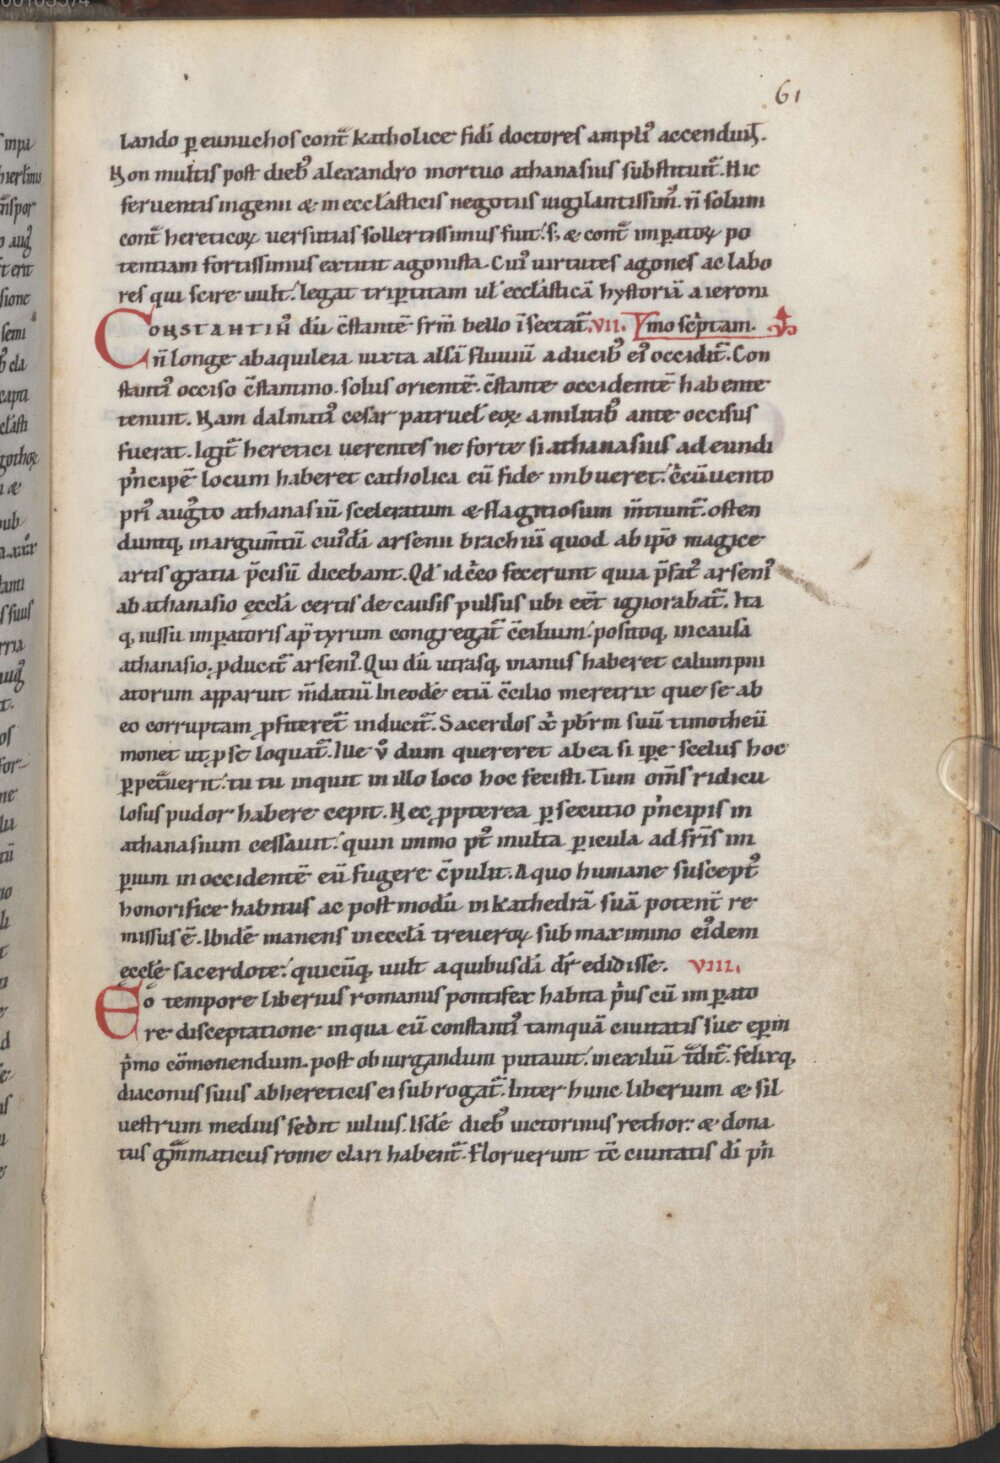 61
lando ꝑ eunuchos cont̄ katholice fidi doctores ampli᷒ accenduꝉ.
Non multis post dieb᷒ alexandro mortuo athanasius substituit᷑. Hic
ferventis ingenii & in eccl̄asticis negotiis uigilantissim᷒. n̄ solum
cont̄ hereticoꝝ uersutias sollertissimus fuit. s; & cont̄ imꝑatoꝝ po
tentiam fortissimus extitit agonista. Cui᷒ uirtutes agones ac labo
res qui scire uult. legat tripertitam ul̓ eccl̄asticā hystoriā a ieroni
CONSTANTIN᷒ dū c̄stantē fr̄m bello īsectat᷑. VII. ymo sc̓ptam.
n̄ longe ab aquileia iuxta alsā fluuiū a ducib᷒ ei᷒ occidit᷑. Con
stanti᷒ occiso c̄stantino. solus orientē. c̄stante occidentē habente
tenuit. Nam dalmati᷒ cesar patruel̓ eoꝝ a militib᷒ ante occisus
fuerat. Igit᷑ heretici uerentes ne forte si athanasius ad eundi
p̓ncipē locum haberet catholica eū fide imbueret. c̓cūuento
pri᷒ aug᷒to athanasiū sceleratum & flagitiosum m̄tiunt᷑. osten
duntq, in argum̄tū cui᷒dā arsenii brachiū quod ab ip̄o magice
artis gratia p̄cisū dicebant. Qd̓ idc̓co fecerunt quia p̄fat᷒ arseni᷒
ab athanasio eccl̄a certis de causis pulsus ubi eēt ignorabat᷑. Ita
q, iussu imperatoris ap̄ tyrum congregat᷑ c̄cilium. positoq, in causa
athanasio, ꝓducit᷑ arseni᷒. Qui dū utrasq, manus haberet calumpni
atorum apparuit m̄datiū. In eodē etiā c̄cilio meretrix que se ab
eo corruptam ꝓfiteret᷑ inducit᷑. Sacerdos xp̄i pb̄rm suū timotheū
monet ut ꝑ se loquat᷑. Ille v̊ dum quereret ab ea si ipse scelus hoc
ꝑpet᷑uerit. tu tu inquit in illo loco hoc fecisti. Tum om̄s ridicu
losus pudor habere cepit. Nec ꝓpterea ꝑsecutio p̓ncipis in
athanasium cessauit. quin immo pt᷒ multa ꝑicula ad fr̄is im
ꝑium in occidentē eū fugere c̄pulit. A quo humane suscept᷒
honorifice habitus ac post modū in kathedrā suā potent᷑ re
missus ē. Ibidē manens in eccl̄a treueroꝝ sub maximino ei᷒dem
eccl̄e sacerdote. quicūq, uult a quibusdā dr̄ edidisse. VIII.
EO tempore liberius romanus pontifex habita p̓us cū imꝑato
re disceptatione in qua eū constanti᷒ tamquā ciuitatis sue ep̄m
p̓mo cōmonendum. post obiurgandum putauit. in exiliū t̄dit᷑. felixq,
diaconus suus ab hereticis ei subrogat᷑. Inter hunc liberium & sil
uestrum medius sedit iulius. Isdē dieb᷒ uictorinus rethor: & dona
tus gm̄maticus rome clari habent᷑. Floruerunt tc̄ ciuitatis dī p̓n